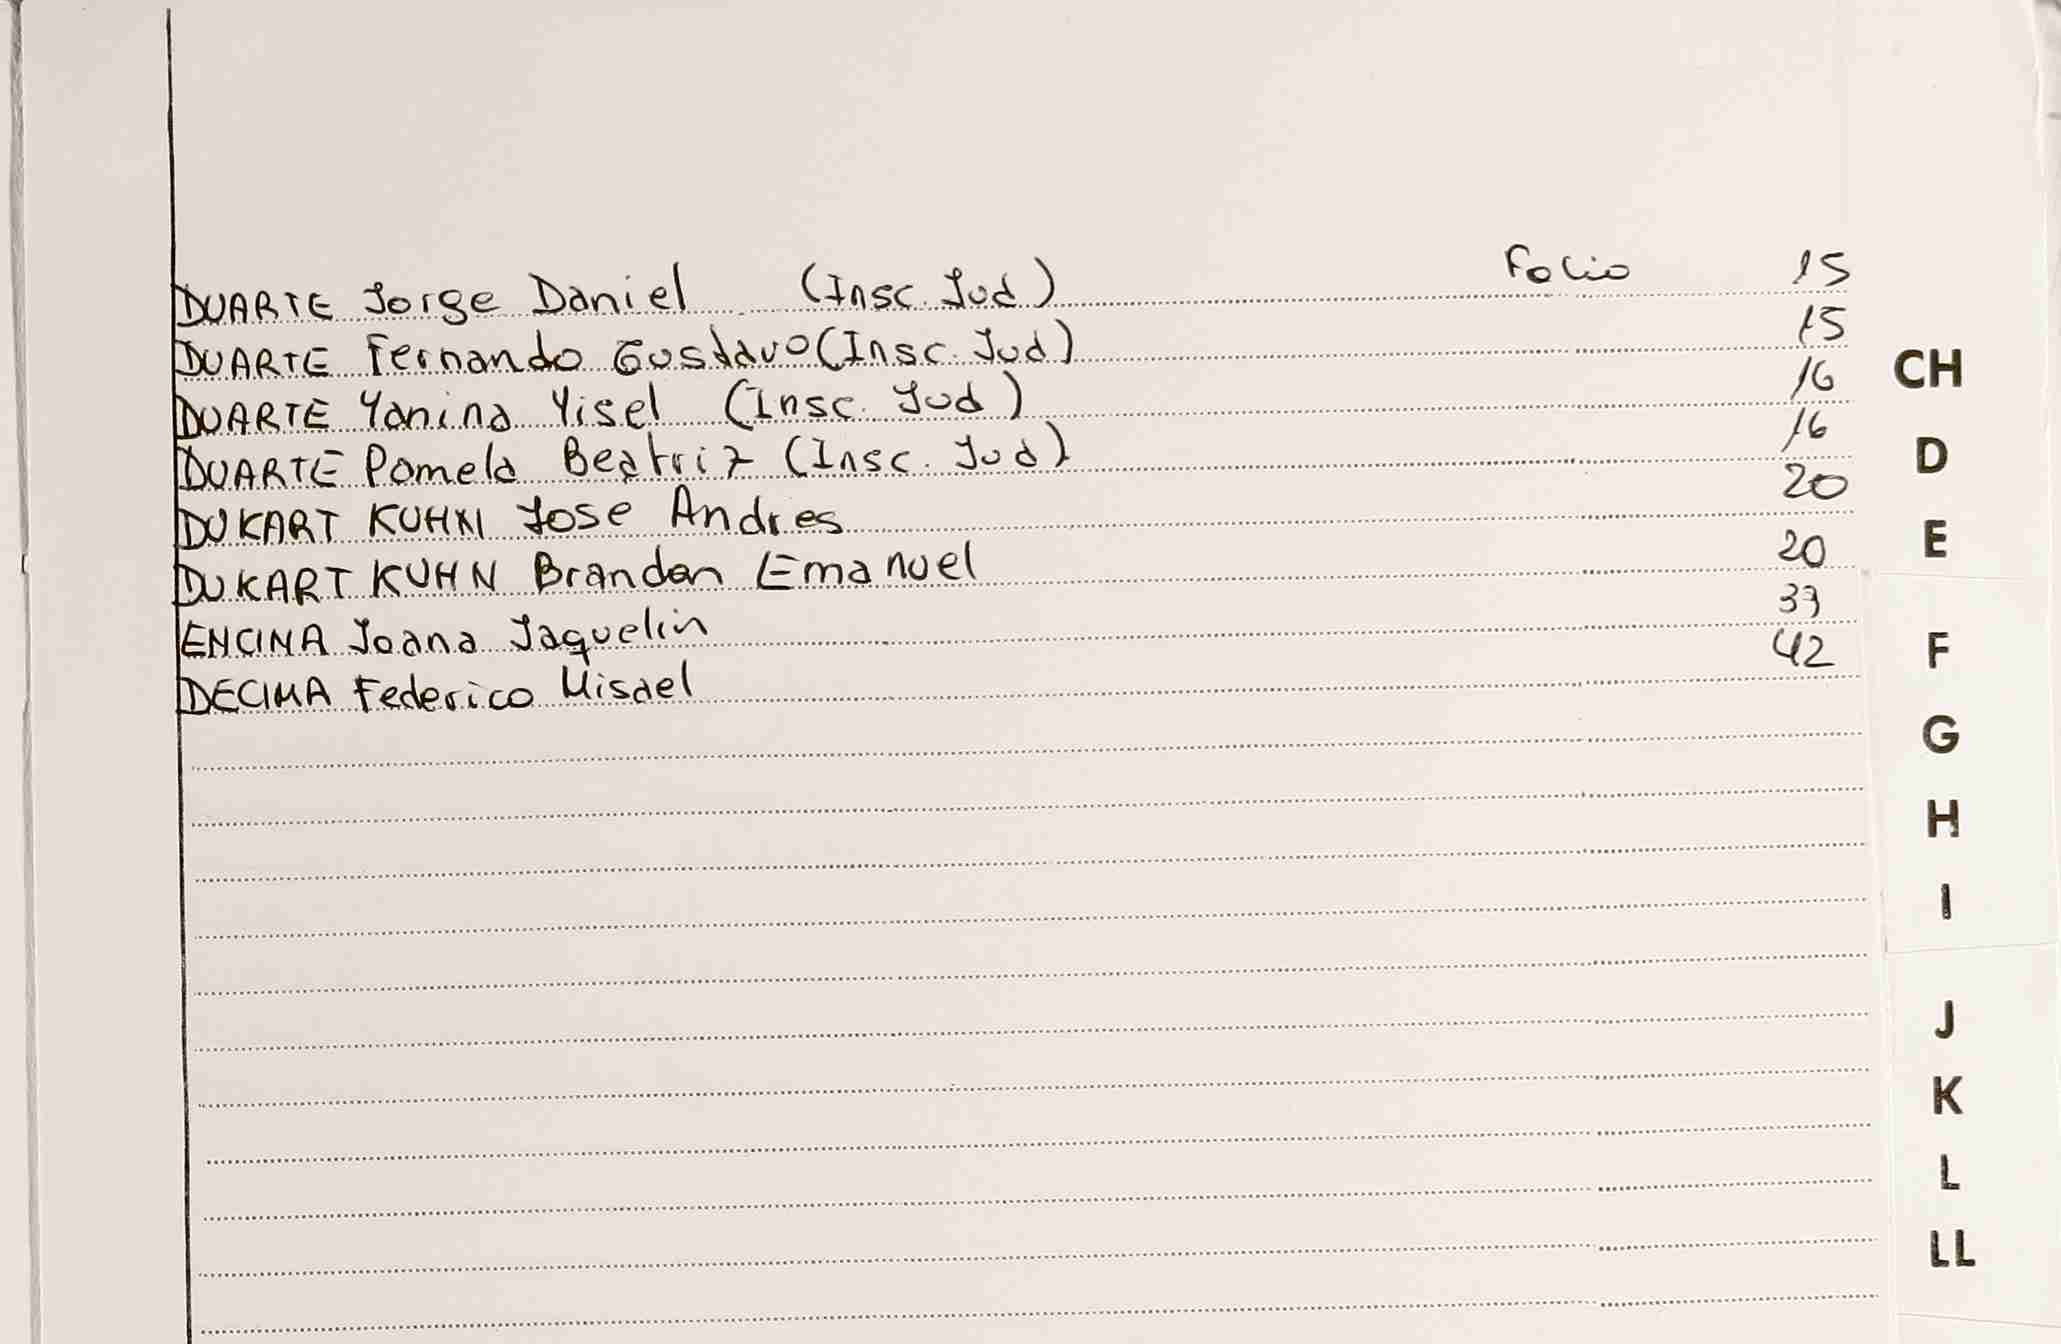 DUARTE Jorge Daniel (Insc. Jud) Folio 15
DUARTE Fernando Gustavo (Insc. Jud) 15
DUARTE Yanina Yisel (Insc. Jud) 16
DUARTE Pamela Beatriz (Insc. Jud) 16
DUKART KUHN Jose Andres 20
DUKART KUHN Brandan Emanuel 20
ENCINA Joana Jaquelin 39
DECIMA Federico Misael 42
CH
D
E
F
G
H
I
J
K
L
LL